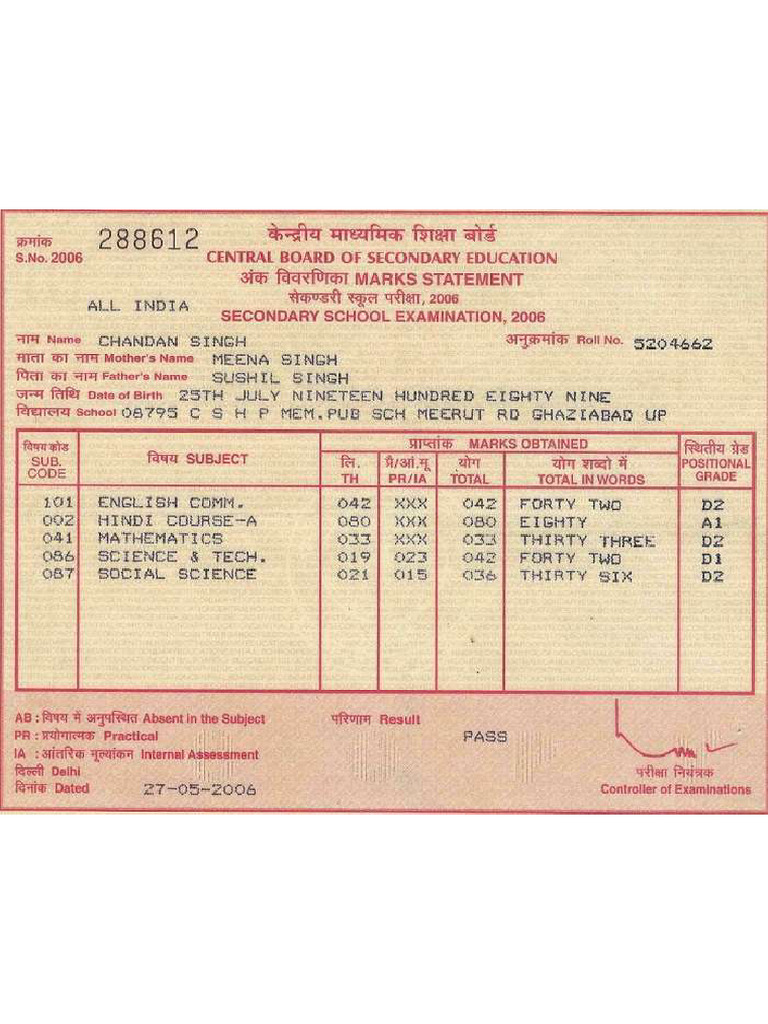 क्रमांक
S.No. 2006 288612
केन्द्रीय माध्यमिक शिक्षा बोर्ड
CENTRAL BOARD OF SECONDARY EDUCATION
अंक विवरणिका MARKS STATEMENT
सेकण्डरी स्कूल परीक्षा, 2006
ALL INDIA
SECONDARY SCHOOL EXAMINATION, 2006
नाम Name CHANDAN SINGH अनुक्रमांक Roll No. 5204662
माता का नाम Mother's Name MEENA SINGH
पिता का नाम Father's Name SUSHIL SINGH
जन्म तिथि Date of Birth 25TH JULY NINETEEN HUNDRED EIGHTY NINE
विद्यालय School 08795 C S H P MEM.PUB SCH MEERUT RD GHAZIABAD UP
विषय कोड SUB. CODE विषय SUBJECT प्राप्तांक MARKS OBTAINED स्थितीय ग्रेड POSITIONAL GRADE
लि. TH प्रै/आं.मू PR/IA योग TOTAL योग शब्दो में TOTAL IN WORDS
101 ENGLISH COMM. 042 XXX 042 FORTY TWO D2
002 HINDI COURSE-A 080 XXX 080 EIGHTY A1
041 MATHEMATICS 033 XXX 033 THIRTY THREE D2
086 SCIENCE & TECH. 019 023 042 FORTY TWO D1
087 SOCIAL SCIENCE 021 015 036 THIRTY SIX D2
AB : विषय में अनुपस्थित Absent in the Subject परिणाम Result PASS
PR : प्रयोगात्मक Practical
IA : आंतरिक मूल्यांकन Internal Assessment
दिल्ली Delhi परीक्षा नियंत्रक
दिनांक Dated 27-05-2006 Controller of Examinations